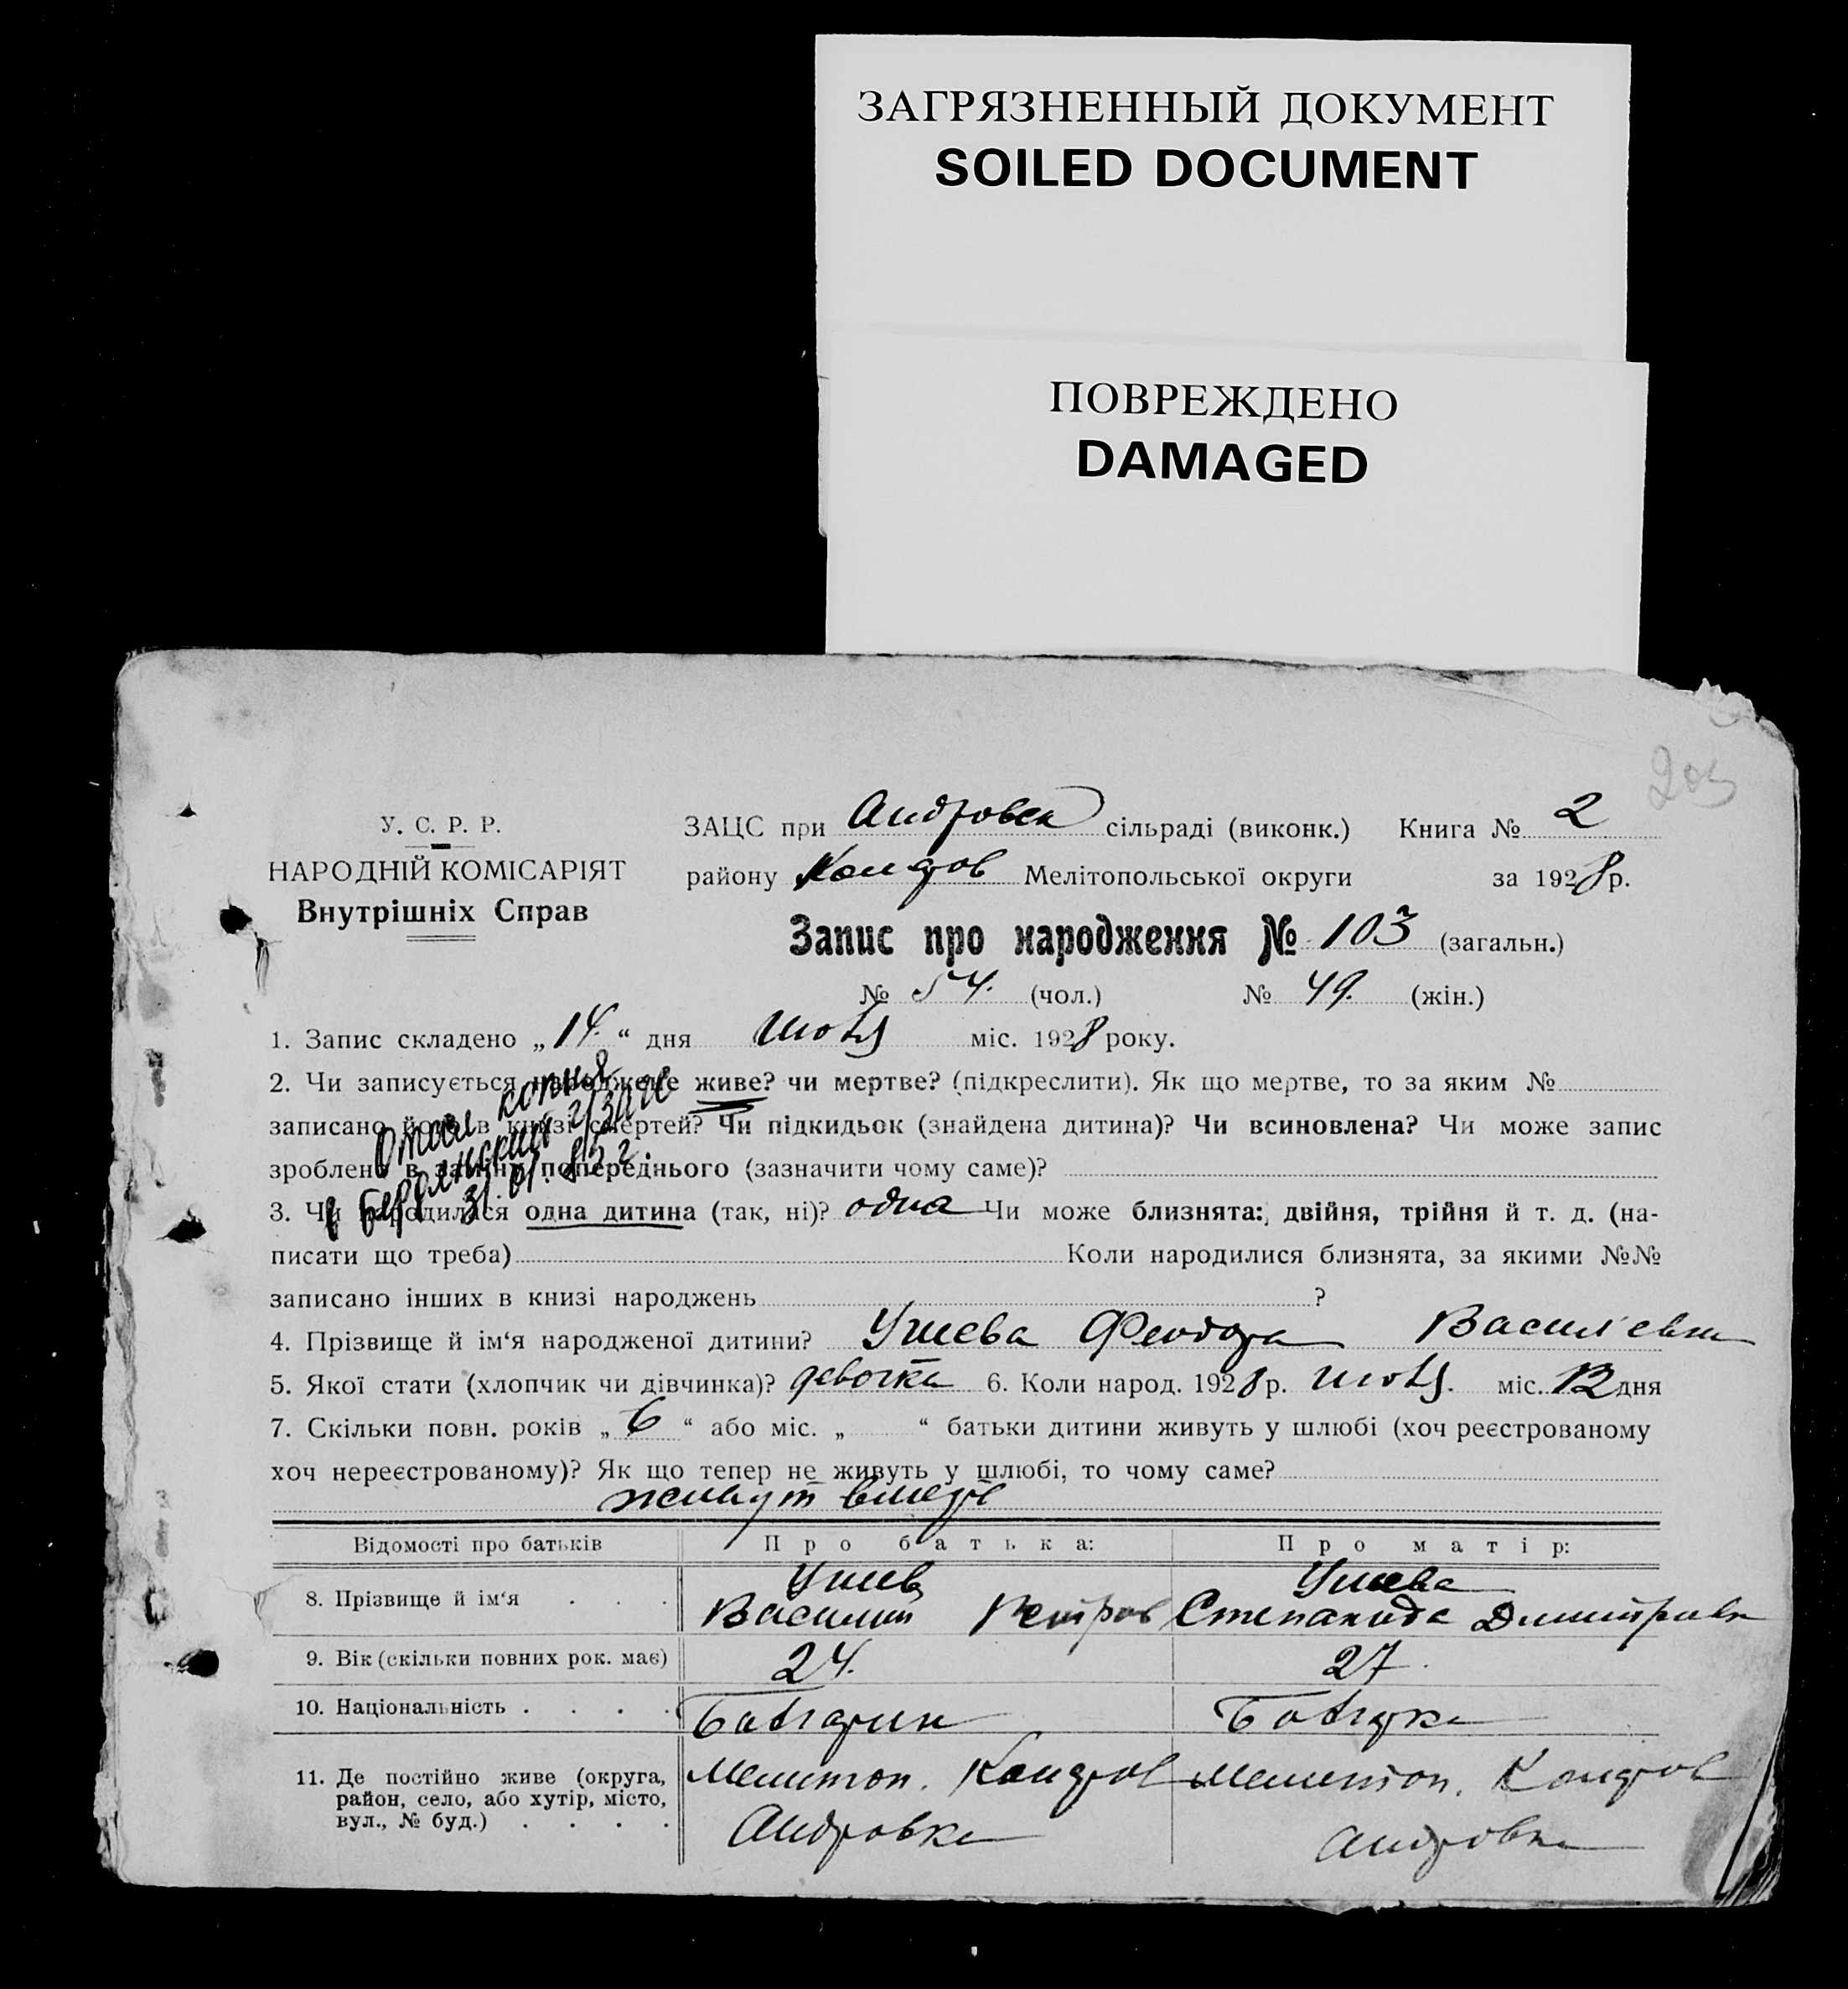 ЗАГРЯЗНЕННЫЙ ДОКУМЕНТ
SOILED DOCUMENT
ПОВРЕЖДЕНО
DAMAGED
203
У. С. Р. Р.
НАРОДНІЙ КОМІСАРІЯТ
Внутрішніх Справ
ЗАЦС при Андровск сільраді (виконк.) Книга № 2
району Мелітопольської округи за 1928 р.
Запис про народження № 103 (загальн.)
№ 54. (чол.) № 49. (жін.)
1. Запис складено „14.“ дня июля міс. 1928 року.
2. Чи записується народжене живе? чи мертве? (підкреслити). Як що мертве, то за яким №
записано його в книзі смертей? Чи підкидьок (знайдена дитина)? Чи всиновлена? Чи може запис
зроблено в заміну попереднього (зазначити чому саме)?
копия
в Бердянский
31.01.85 г.
3. Чи народилася одна дитина (так, ні)? одна Чи може близнята: двійня, трійня й т. д. (на-
писати що треба) Коли народилися близнята, за якими №№
записано інших в книзі народжень ?
4. Прізвище й ім‘я народженої дитини? Феодора Васильевна
5. Якої стати (хлопчик чи дівчинка)? девочка 6. Коли народ. 1928 р. июля. міс. 12 дня
7. Скільки повн. років „6“ або міс. „ “ батьки дитини живуть у шлюбі (хоч реєстрованому
хоч нереєстрованому)? Як що тепер не живуть у шлюбі, то чому саме?
живут вместе
Відомості про батьків Про батька: Про матір:
8. Прізвище й ім‘я . . .
Василий Петров Степанида Димитриев
9. Вік (скільки повних рок. має) 24. 27.
10. Національність . . . . Болгарин Болгарка
11. Де постійно живе (округа, Мелитоп. Мелитоп.
район, село, або хутір, місто,
вул., № буд.) . . . . Андровка Андровка